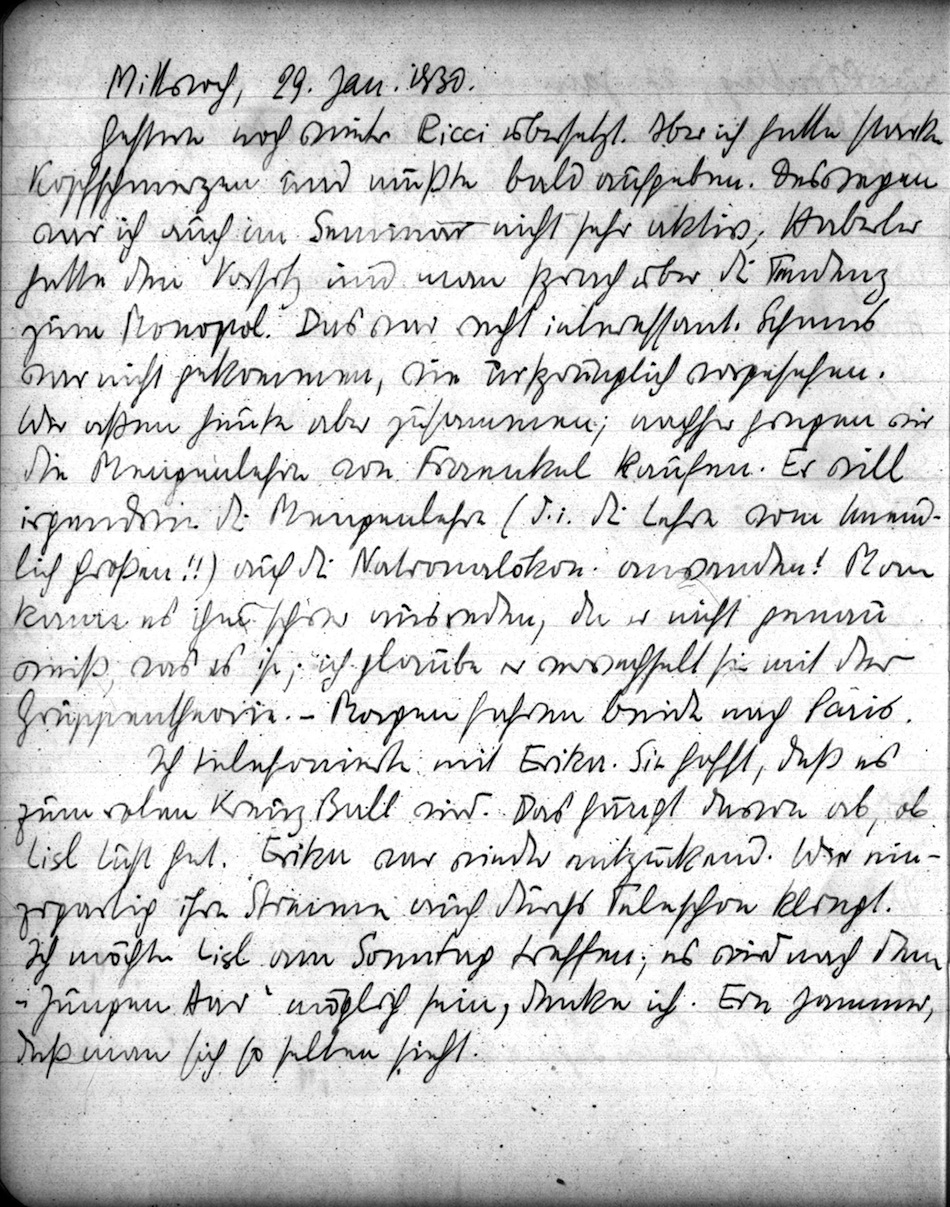 Mittwoch, 29. Jan. 1930.
Gestern noch weiter Ricci übersetzt. Aber ich hatte starke
Kopfschmerzen und mußte bald aufgeben. Deswegen
war ich auch im Seminar nicht sehr aktiv; Haberler
hatte den Vorsitz und man sprach über die Tendenz
zum Monopol. Das war recht interessant. Schams
war nicht gekommen, wie ursprünglich vorgesehen.
Wir aßen heute aber zusammen; nachher gingen wir
die Mengenlehre von Fraenkel kaufen. Er will
irgendwie die Mengenlehre (d.i. die Lehre vom Unend-
lich Großen!!) auf die Nationalökon. anwenden! Man
kann es ihm schwer ausreden, da er nicht genau
weiß, was es ist; ich glaube er verwechselt sie mit der
Gruppentheorie. – Morgen fahren beide nach Paris.
Ich telefonierte mit Erika. Sie hofft, daß es
zum roten Kreuz Ball wird. Das hängt davon ab, ob
Lisl geht. Erika war wieder entzückend. Wie ein-
zigartig ihre Stimme auch durchs Telephon klingt.
Ich möchte Lisl am Sonntag treffen; es wird nach dem
"Jungen Aar" möglich sein, denke ich. Ein Jammer,
daß man sich so selten sieht.